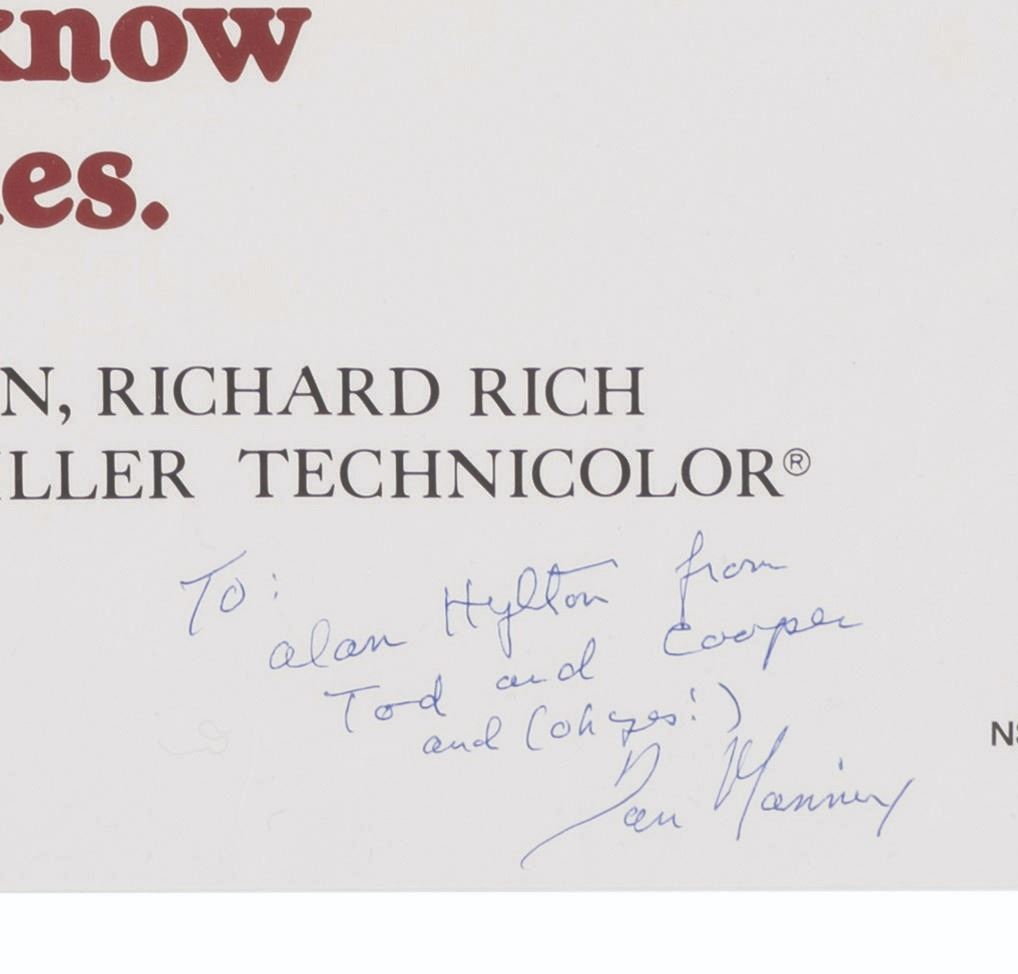 know
es.
N, RICHARD RICH
ILLER TECHNICOLOR®
To:
alan Hylton from
Tod and Cooper
and (oh yes!)
Dan Mannix
N